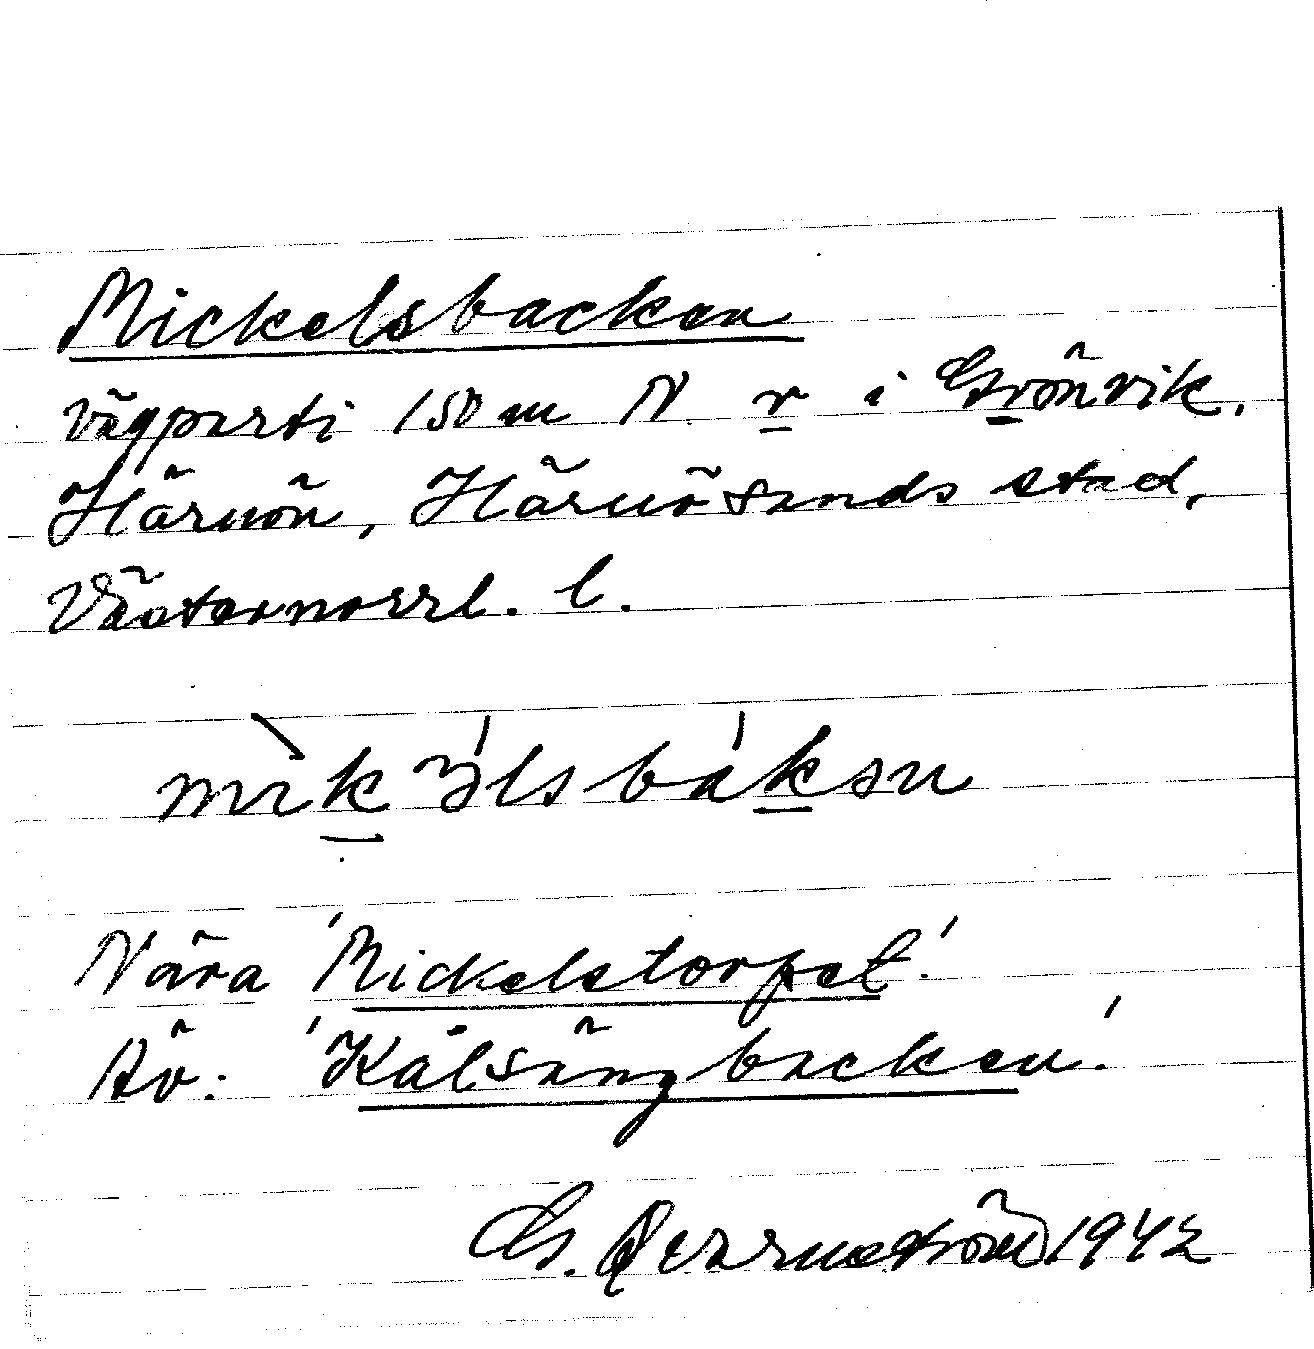 Mickelsbacken
vägparti 150 m N r i Grönvik.
Härnön, Härnösands stad,
Västernorrl. l.
Nära 'Mickelstorpet'.
Äv. 'Kålsängbacken'.
G. Qvarnström 1942